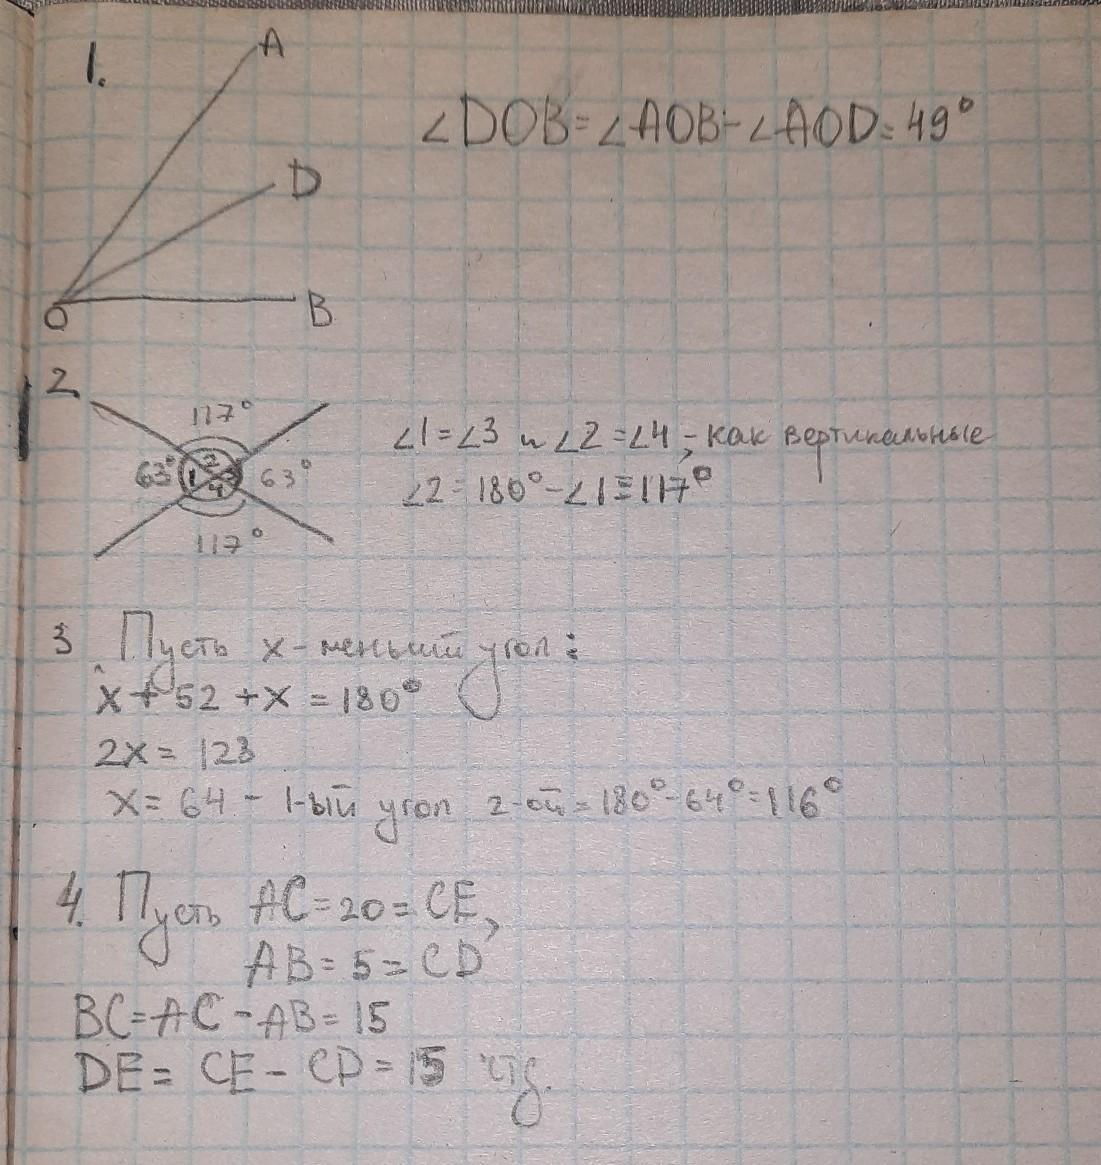 1.
A
D
O
B
∠DOB=∠AOB-∠AOD=49°
2.
117°
63° 1 2 3 4 63°
117°
∠1=∠3 и ∠2=∠4, - как вертикальные
∠2=180°-∠1=117°
3. Пусть x-меньший угол:
x+52+x=180°
2x=123
x=64 - 1-ый угол 2-ой=180°-64°=116°
4. Пусть AC=20=CE,
AB=5=CD
BC=AC-AB=15
DE=CE-CD=15 чтд.